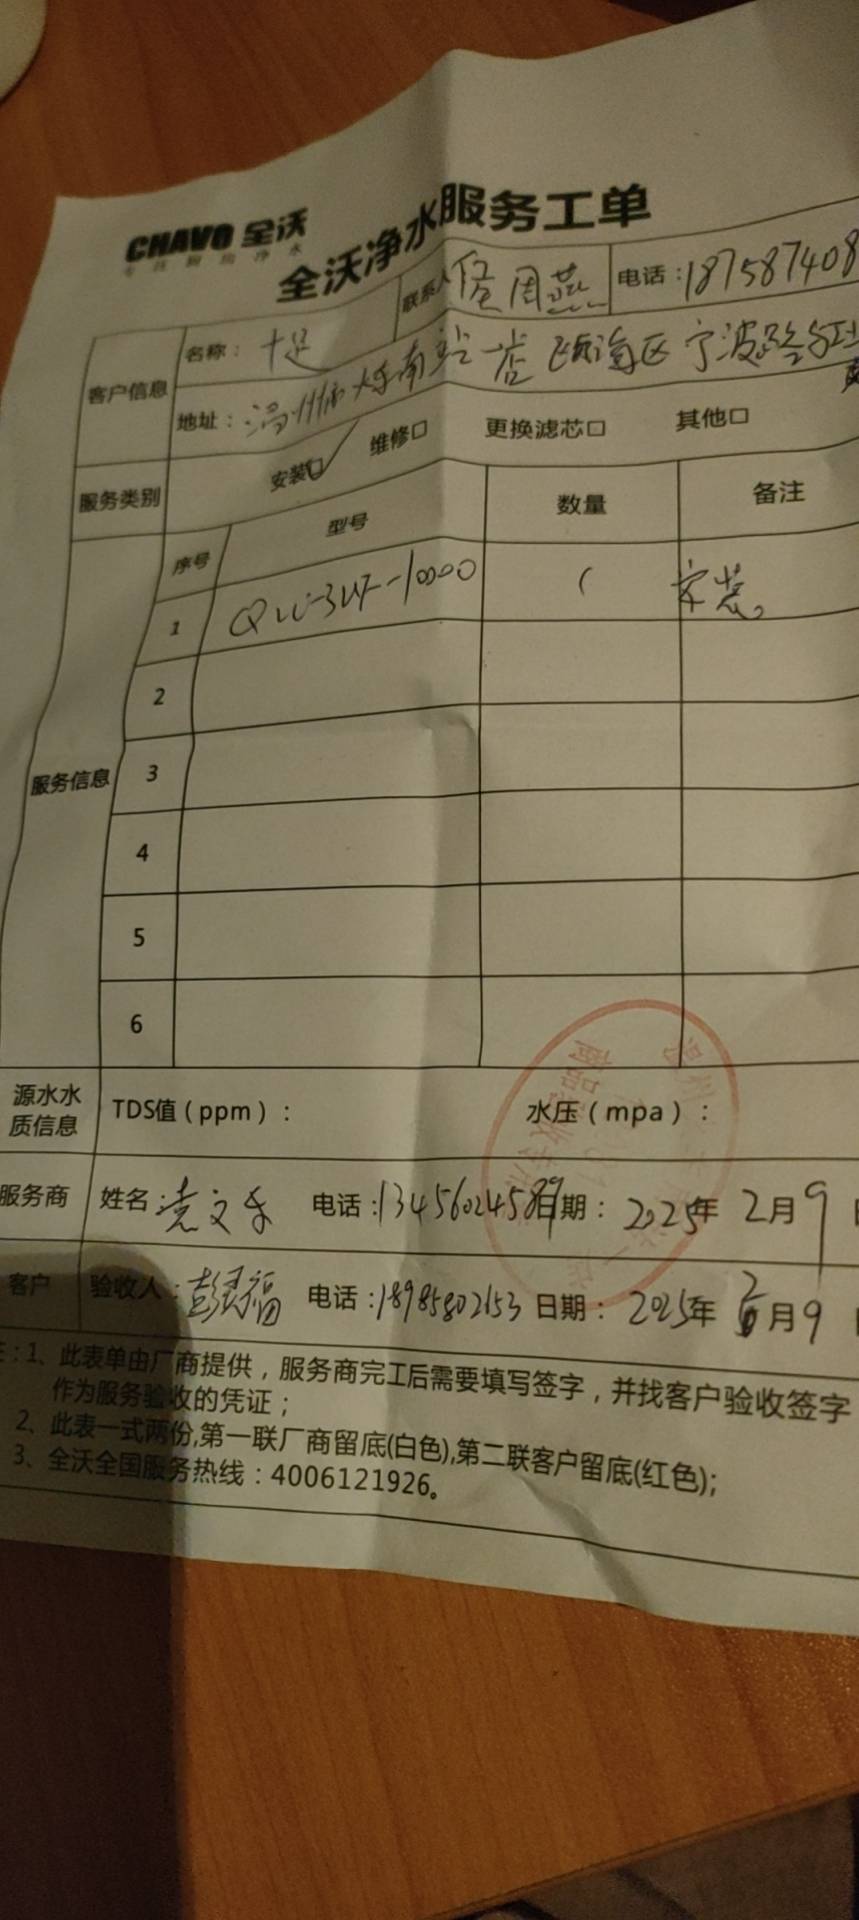 CHAVO 全沃
全沃净水服务工单
客户信息 名称：十足 联系人 周燕 电话：187587408
地址：温州市火车南站一店 瓯海区宁波路
服务类别 安装☑ 维修□ 更换滤芯□ 其他□
服务信息 序号 型号 数量 备注
1 10000 1 安装
2
3
4
5
6
源水水质信息 TDS值（ppm）： 水压（mpa）：
服务商 姓名： 文 电话：13456024589 日期：2025年2月9日
客户 验收人：彭 福 电话：18985802153 日期：2025年2月9日
1、此表单由厂商提供，服务商完工后需要填写签字，并找客户验收签字
作为服务验收的凭证；
2、此表一式两份,第一联厂商留底(白色),第二联客户留底(红色);
3、全沃全国服务热线：4006121926。